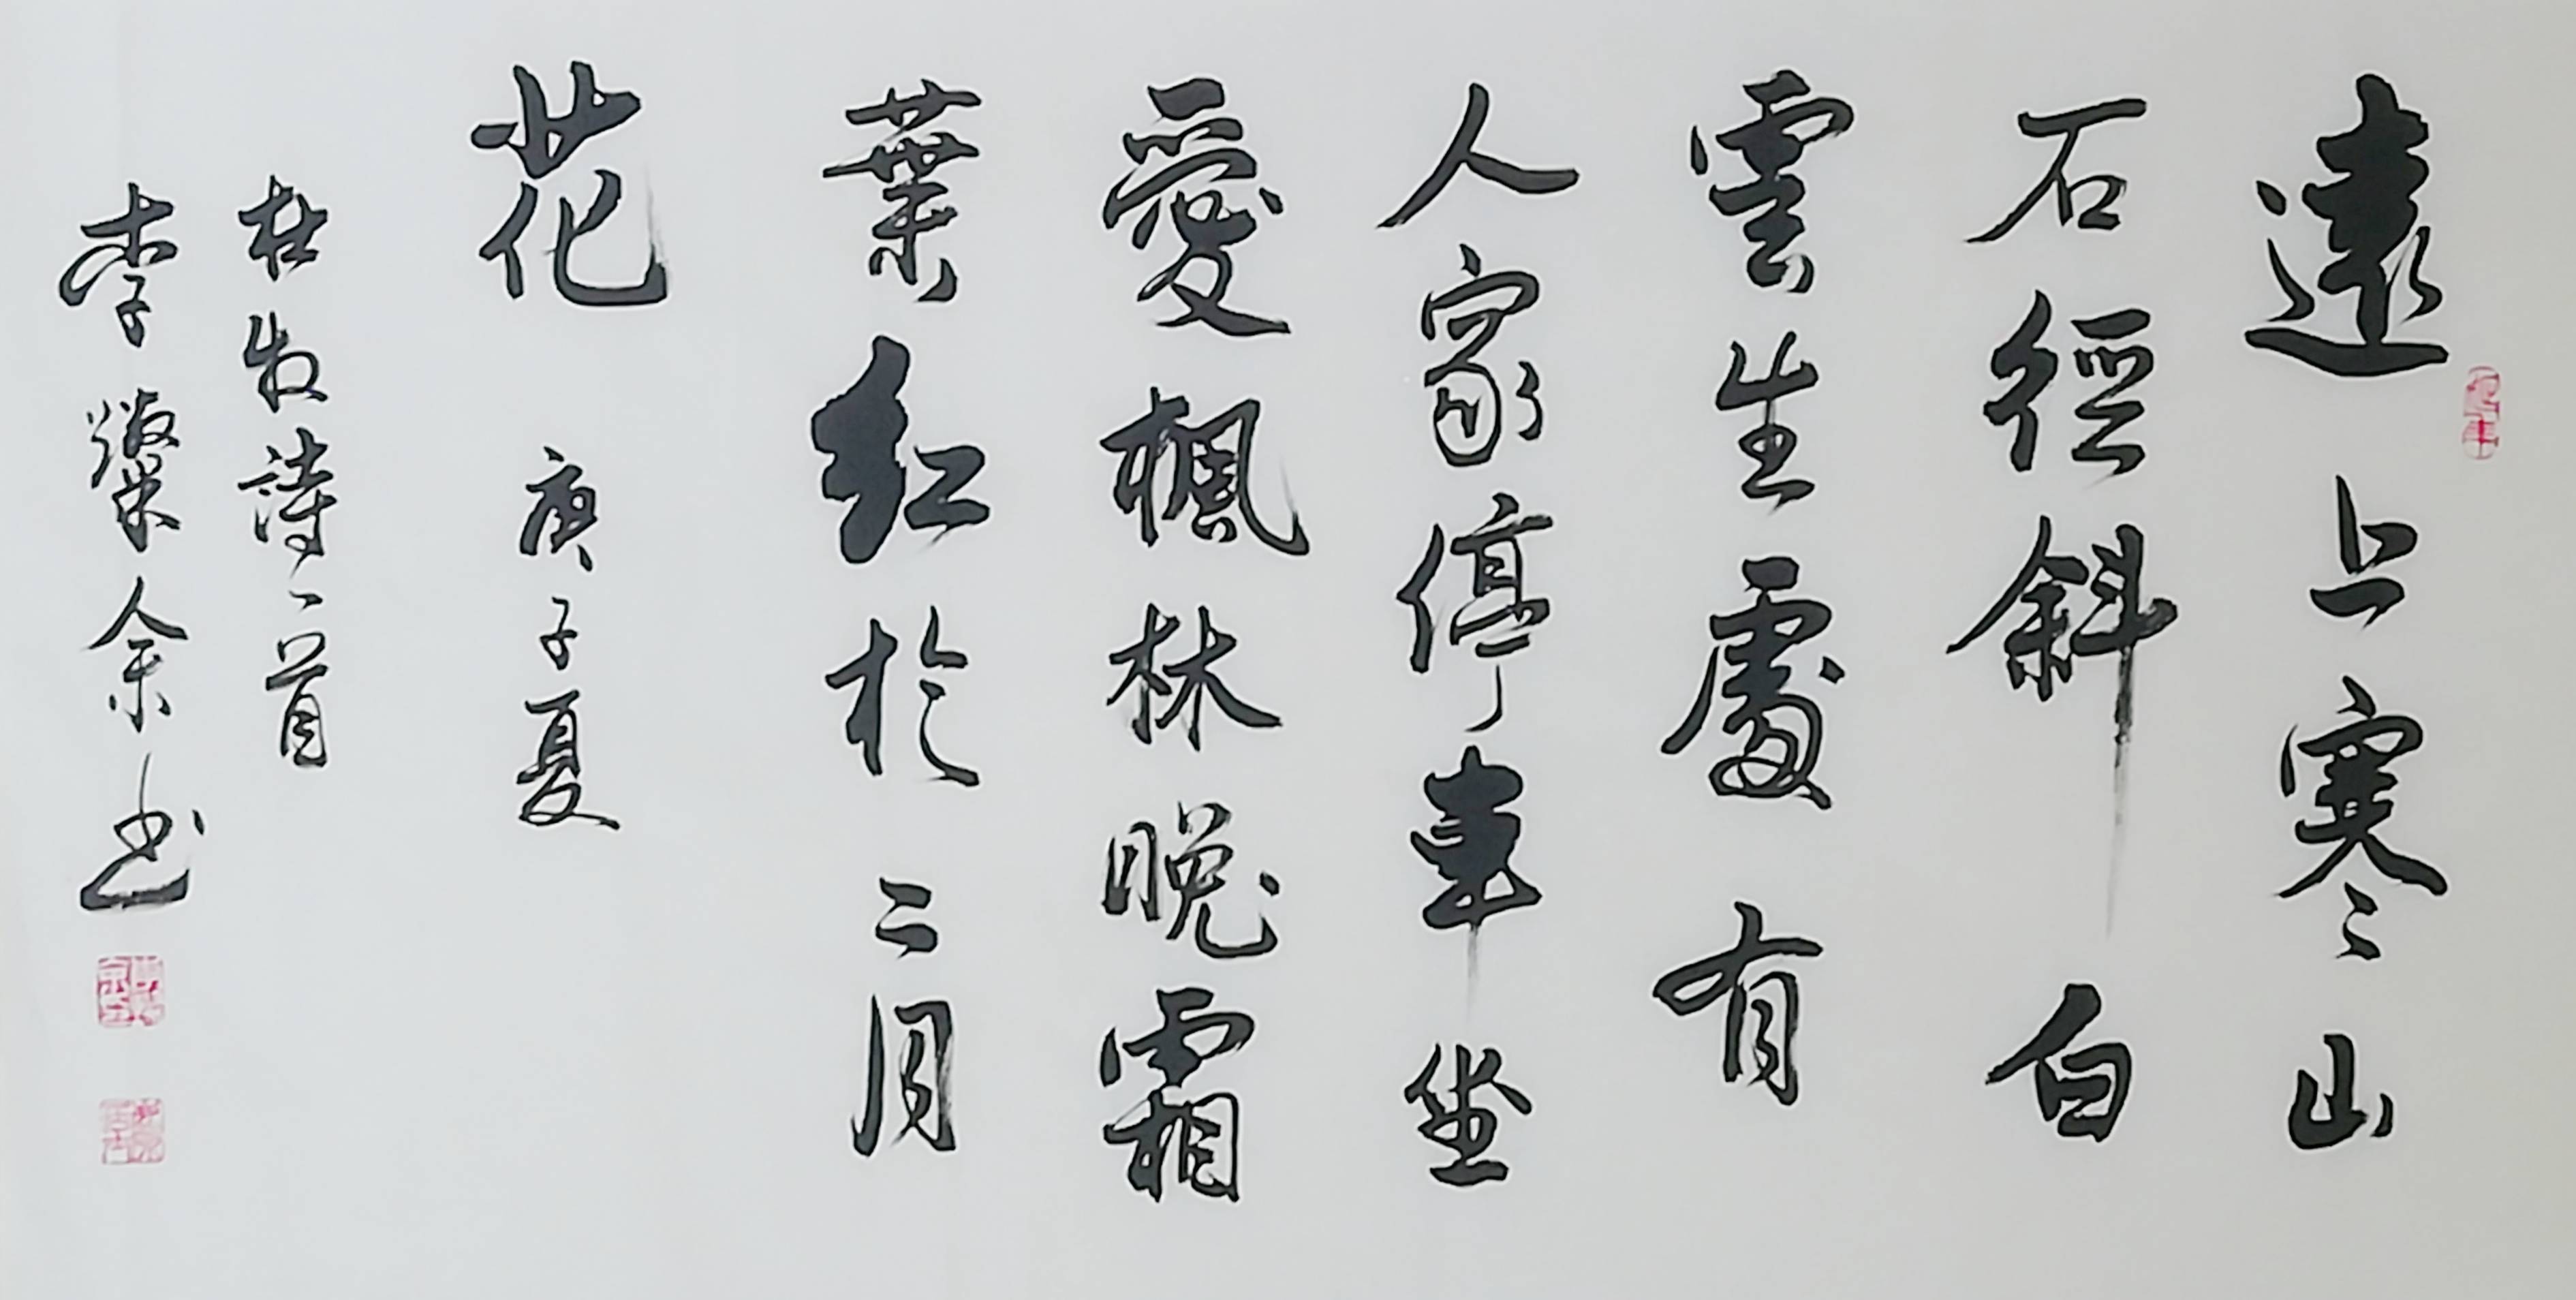 遠上寒山
石徑斜白
雲生處有
人家停車坐
愛楓林晚霜
葉紅於二月
花
庚子夏
杜牧詩一首
李燦余书